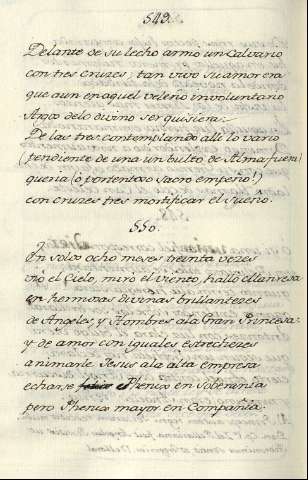 549.
Delante de su lecho armó un Calvario
con tres Cruzes; tan vivo su amor era
que aun en aquel veleño involuntario
Argos de lo divino ser quisiera:
De las tres contemplando alli lo vario
(pendiente de una un bulto de Alma fuera)
queria (ó portentoso sacro empeño!)
con cruzes tres mortificar el sueño.
550.
En solos ocho meses treinta vezes
vió el Cielo, miró el viento, halló Manresa
en hermosas divinas brillantezes
de Angeles, y Hombres a la Gran Princesa:
y de amor con iguales estrechezes
animarle Jesus a la alta empresa
echarse Phenix en Soberania
pero Phenix mayor en Compañia.